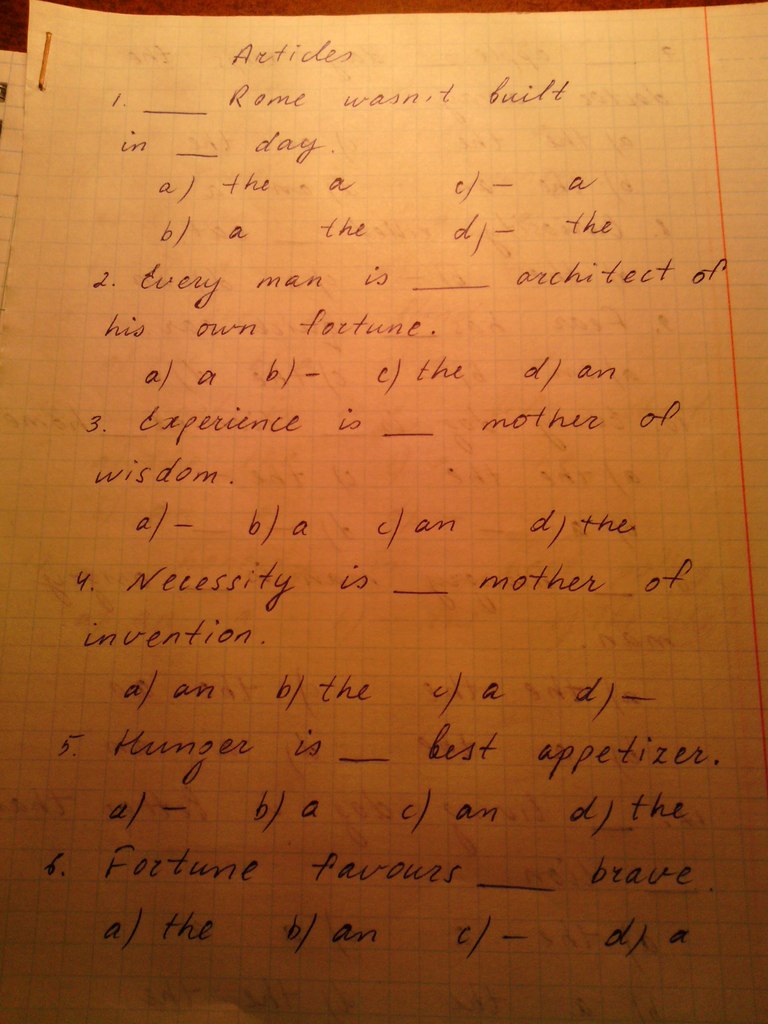 Articles
1. ____ Rome wasn't built
in ___ day.
a) the a c) – a
b) a the d) – the
2. Every man is _____ architect of
his own fortune.
a) a b) – c) the d) an
3. Experience is ___ mother of
wisdom.
a) – b) a c) an d) the
4. Necessity is ___ mother of
invention.
a) an b) the c) a d) –
5. Hunger is ___ best appetizer.
a) – b) a c) an d) the
6. Fortune favours ____ brave.
a) the b) an c) – d) a